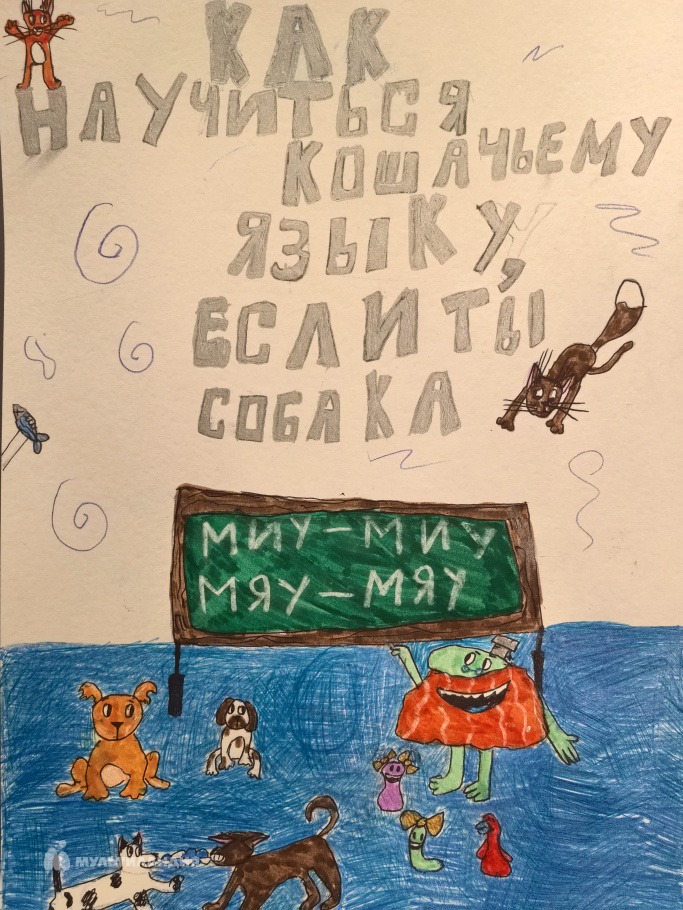 КАК
НАУЧИТЬСЯ
КОШАЧЬЕМУ
ЯЗЫКУ,
ЕСЛИ ТЫ
СОБАКА
МИУ-МИУ
МЯУ-МЯУ